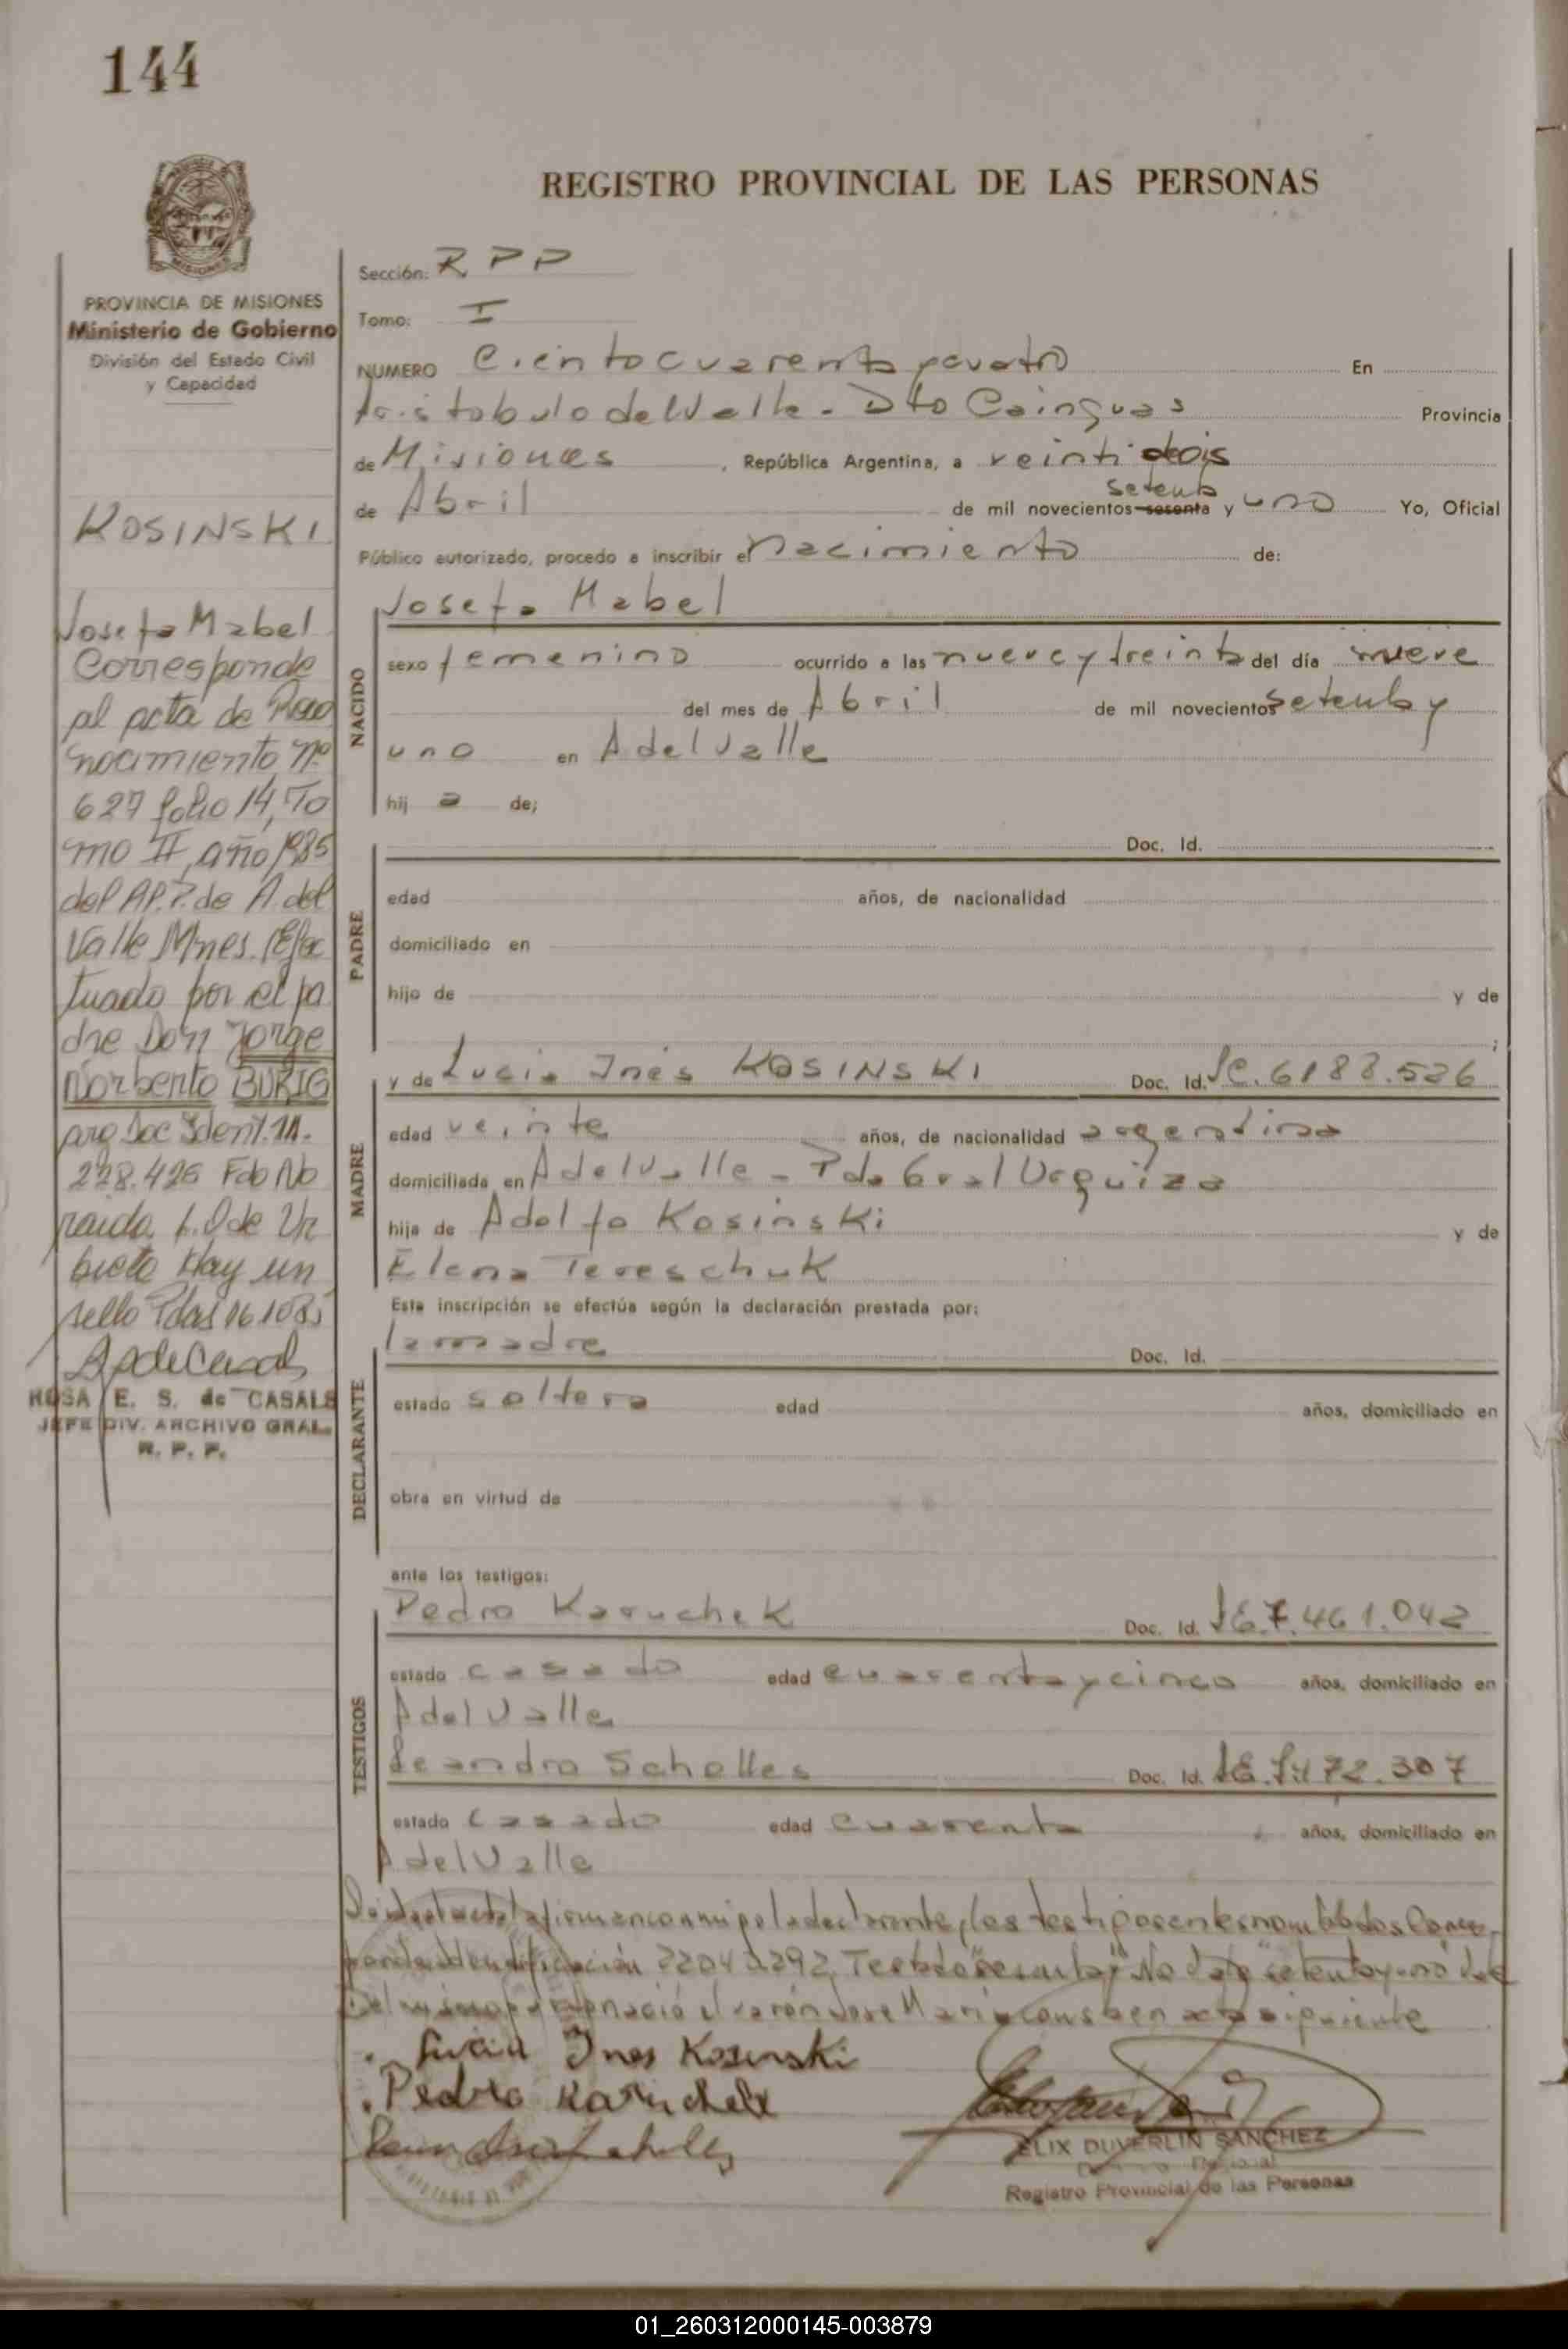 144
REGISTRO PROVINCIAL DE LAS PERSONAS
MISIONES
PROVINCIA DE MISIONES
Ministerio de Gobierno
División del Estado Civil
y Capacidad
KOSINSKI
Josefa Mabel
Corresponde
al acta de Reco
nocimiento nº
627 folio 14, To
mo II, año 1985
del A. del
Valle Mnes. (Efec
tuado por el pa
dre Don Jorge
Norberto BURIG
Doc Ident. 11.
228.426 Fdo No
raida de Ur
bieta Hay un
sello Pdas
ROSA E. S. de CASALS
JEFE DIV. ARCHIVO GRAL.
R. P. P.
Sección: RPP
Tomo: I
NUMERO Ciento cuarenta y cuatro En
Aristobulo del Valle - Dto Cainguas Provincia
de Misiones, República Argentina, a veintidois
de Abril de mil novecientos sesenta setenta y uno Yo, Oficial
Público autorizado, procedo a inscribir el Nacimiento de:
NACIDO
Josefa Mabel
sexo femenino ocurrido a las nueve y treinta del día nueve
del mes de Abril de mil novecientos setenta y
uno en A del Valle
hij a de;
PADRE
Doc. Id.
edad años, de nacionalidad
domiciliado en
hijo de y de
;
MADRE
y de Lucia Inés KOSINSKI Doc. Id. 6188.526
edad veinte años, de nacionalidad argentina
domiciliada en A del Valle - Pda Gral Urquiza
hija de Adolfo Kosinski y de
Elena Tereschuk
Esta inscripción se efectúa según la declaración prestada por:
DECLARANTE
la madre Doc. Id.
estado soltera edad años, domiciliado en
obra en virtud de
ante los testigos:
TESTIGOS
Pedro Karuchek Doc. Id. 7.461.042
estado casado edad cuarenta y cinco años, domiciliado en
A del Valle
Leandro Scholles Doc. Id. 72.307
estado casado edad cuarenta años, domiciliado en
A del Valle
Leida el acta la firman conmigo la declarante, los testigos nombrados
22042292 Testado "sesenta" No Vale "setenta y uno" Vale
Del mismo parto nació el varón Jose Mario consta en acta siguiente
Lucia Ines Kosinski
Pedro Karuchek
ELIX DUVERLIN SANCHEZ
Registro Provincial de las Personas
01_260312000145-003879